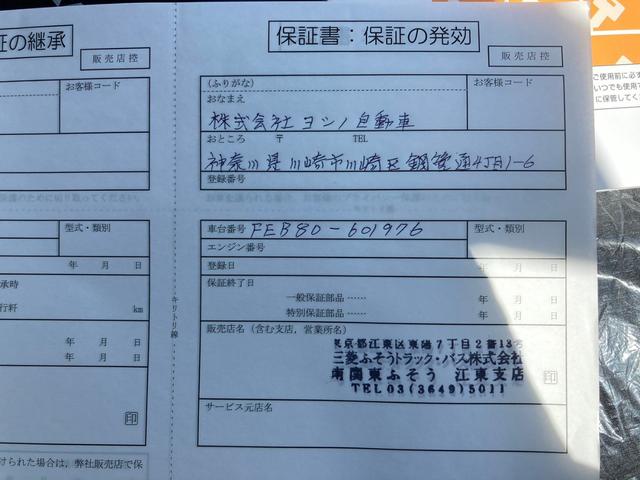 証の継承
販売店控
お客様コード
保護のために切り取ってください。
型式・類別
年 月 日
承時
行粁 km
年 月 日
年 月 日
印
けられた場合は、弊社販売店で保
キリトリ線
保証書：保証の発効
販売店控
(ふりがな)
お客様コード
おなまえ
株式会社 ヨシノ自動車
おところ 〒 TEL
神奈川県川崎市川崎区鋼管通4丁目1-6
登録番号
車台番号 FEB80-601976
型式・類別
エンジン番号
登録日 年 月 日
保証終了日
一般保証部品 …… 年 月 日
特別保証部品 …… 年 月 日
販売店名（含む支店，営業所名）
東京都江東区東陽7丁目2番13号
三菱ふそうトラック・バス株式会社
南関東ふそう 江東支店
印
TEL03(3649)5011
サービス元店名
ご使用前に必ず
いつでも使用で
に保管してく